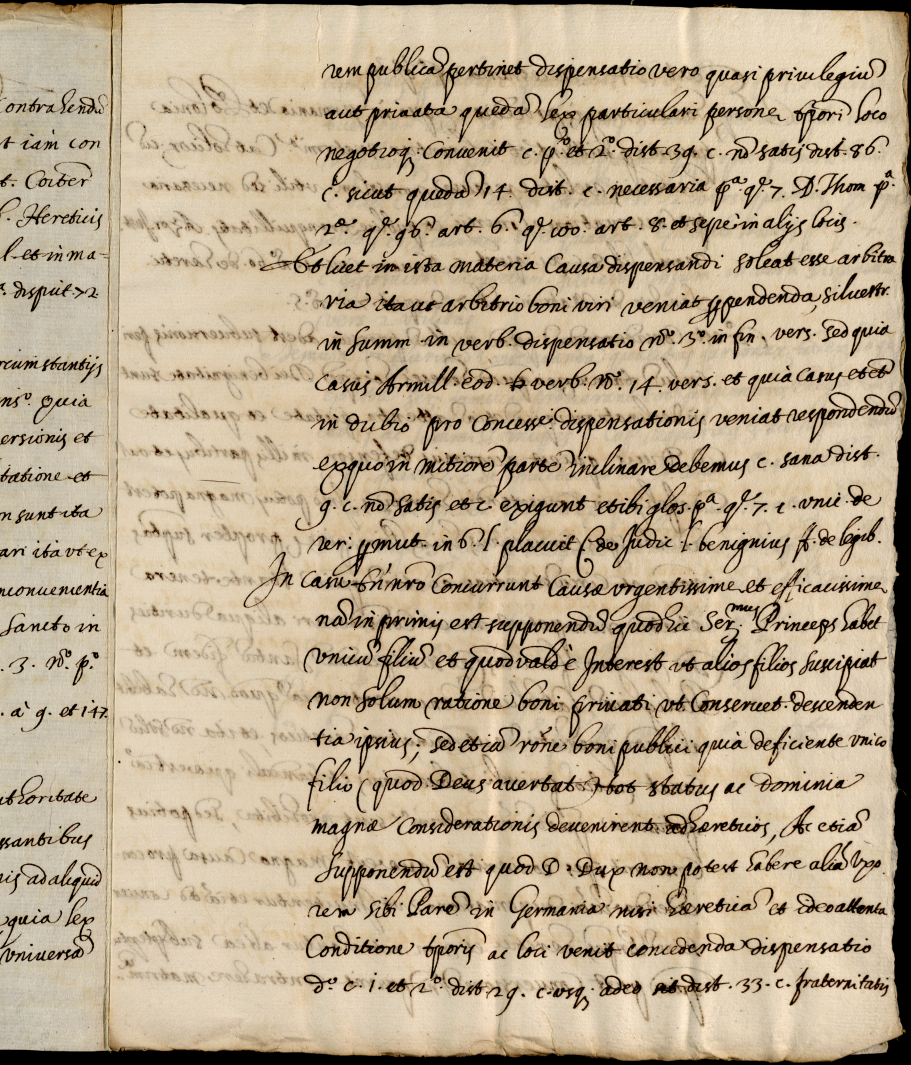 ontrahendũ
t iàm con
t. Coiter
Hereticis
l. et in ma-
ª. disput. 72
rcumstantijs
nsº. quia
ersionis et
tatione et
n sunt ita
ari ità ut ex
nconuenientia
Sancto in
. 3. nº. pº
. à 9. et 147.
uthoritate
ssantibus
nis ad aliquid
quia lex
vniuersã
rem publicã pertinet dispensatio vero quasi priuilegiũ
aut priuata quedã lex particulari persone tp̃ori loco
negotioq; Convenit c. pº. et 2º. dist. 39. c. nõ satis dist. 86.
c. sicut quedã 14. dist. c. necessaria pª. qª. 7. D. Thom pª.
2ª. qª. 96. art. 6. qª. 100. art. 8. et sepè in alijs locis.
Et licet in ista materia Causa dispensandi soleat esse arbitra
ria ita ut arbitrio boni viri veniat ꝑpendenda, siluestr.
in summ. in verb. dispensatio nº. 3º. in fin. vers. sed quia
casus Armill. eod. verb. nº. 14. vers. et quia casus et
in dubio pro Concess dispensationis veniat respondendũ
ex quo in mitiorẽ partẽ inclinare debemus c. sana dist.
9. c. nõ satis et c. exigunt et ibi glos. pª. qª. 7. c. vnic. de
rer. ꝑmut. in 6. l. placuit C. de Judic. l. benignius ff. de legib.
In casu nrõ Concurrunt Causæ vrgentissime et efficacissime
nã in primis est supponendũ quod hic Ser.mus Princeps habet
vnicũ filiũ et quod valdè Interest vt alios filios suscipiat
non solum ratione boni priuati vt Conseruet descenden
tia ipsius; sed etiã rõne boni publici quia deficiente vnico
filio (quod Deus auertat) tot status ac dominia
magnæ Considerationis deuenirent ad hæreticos, Ac etiã
supponendũ est quod D. Dux non potest habere aliã vxo
rem sibi Parẽ in Germania nisi hæreticã et ideo attenta
Conditione tp̃oris ac loci venit concedenda dispensatio
dº. c. 1. et 2º. dist 29. c. vsq; adeo dist. 33. c. fraternitatis